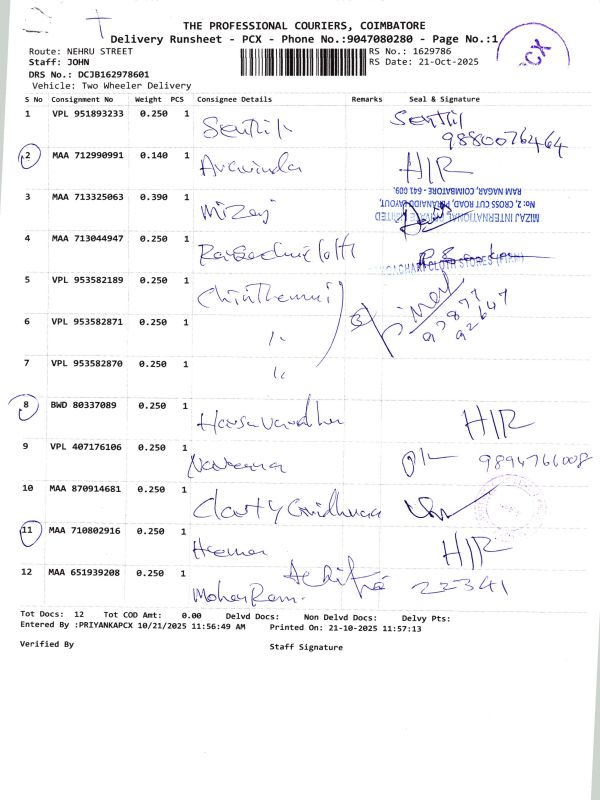 THE PROFESSIONAL COURIERS, COIMBATORE
Delivery Runsheet - PCX - Phone No.:9047080280 - Page No.:1
PCX
Route: NEHRU STREET RS No.: 1629786
Staff: JOHN RS Date: 21-Oct-2025
DRS No.: DCJB162978601
Vehicle: Two Wheeler Delivery
S No Consignment No Weight PCS Consignee Details Remarks Seal & Signature
1 VPL 951893233 0.250 1 Senthil Senthil
98800762464
2 MAA 712990991 0.140 1 Aravinda H/R
3 MAA 713325063 0.390 1 Mizaj
MIZAJ INTERNATIONAL PRIVATE LIMITED
No: 2, CROSS CUT ROAD, LAYOUT,
RAM NAGAR, COIMBATORE - 641 009.
4 MAA 713044947 0.250 1
CLOTH STORES (FIRM)
5 VPL 953582189 0.250 1 Chinthamani
6 VPL 953582871 0.250 1 "
7 VPL 953582870 0.250 1 "
3
97877
92647
8 BWD 80337089 0.250 1 Harsavardhan H/R
9 VPL 407176106 0.250 1 Naveena 9894766008
10 MAA 870914681 0.250 1
11 MAA 710802916 0.250 1 Hema H/R
12 MAA 651939208 0.250 1 Mohan Ram 22341
Tot Docs: 12 Tot COD Amt: 0.00 Delvd Docs: Non Delvd Docs: Delvy Pts:
Entered By :PRIYANKAPCX 10/21/2025 11:56:49 AM Printed On: 21-10-2025 11:57:13
Verified By Staff Signature